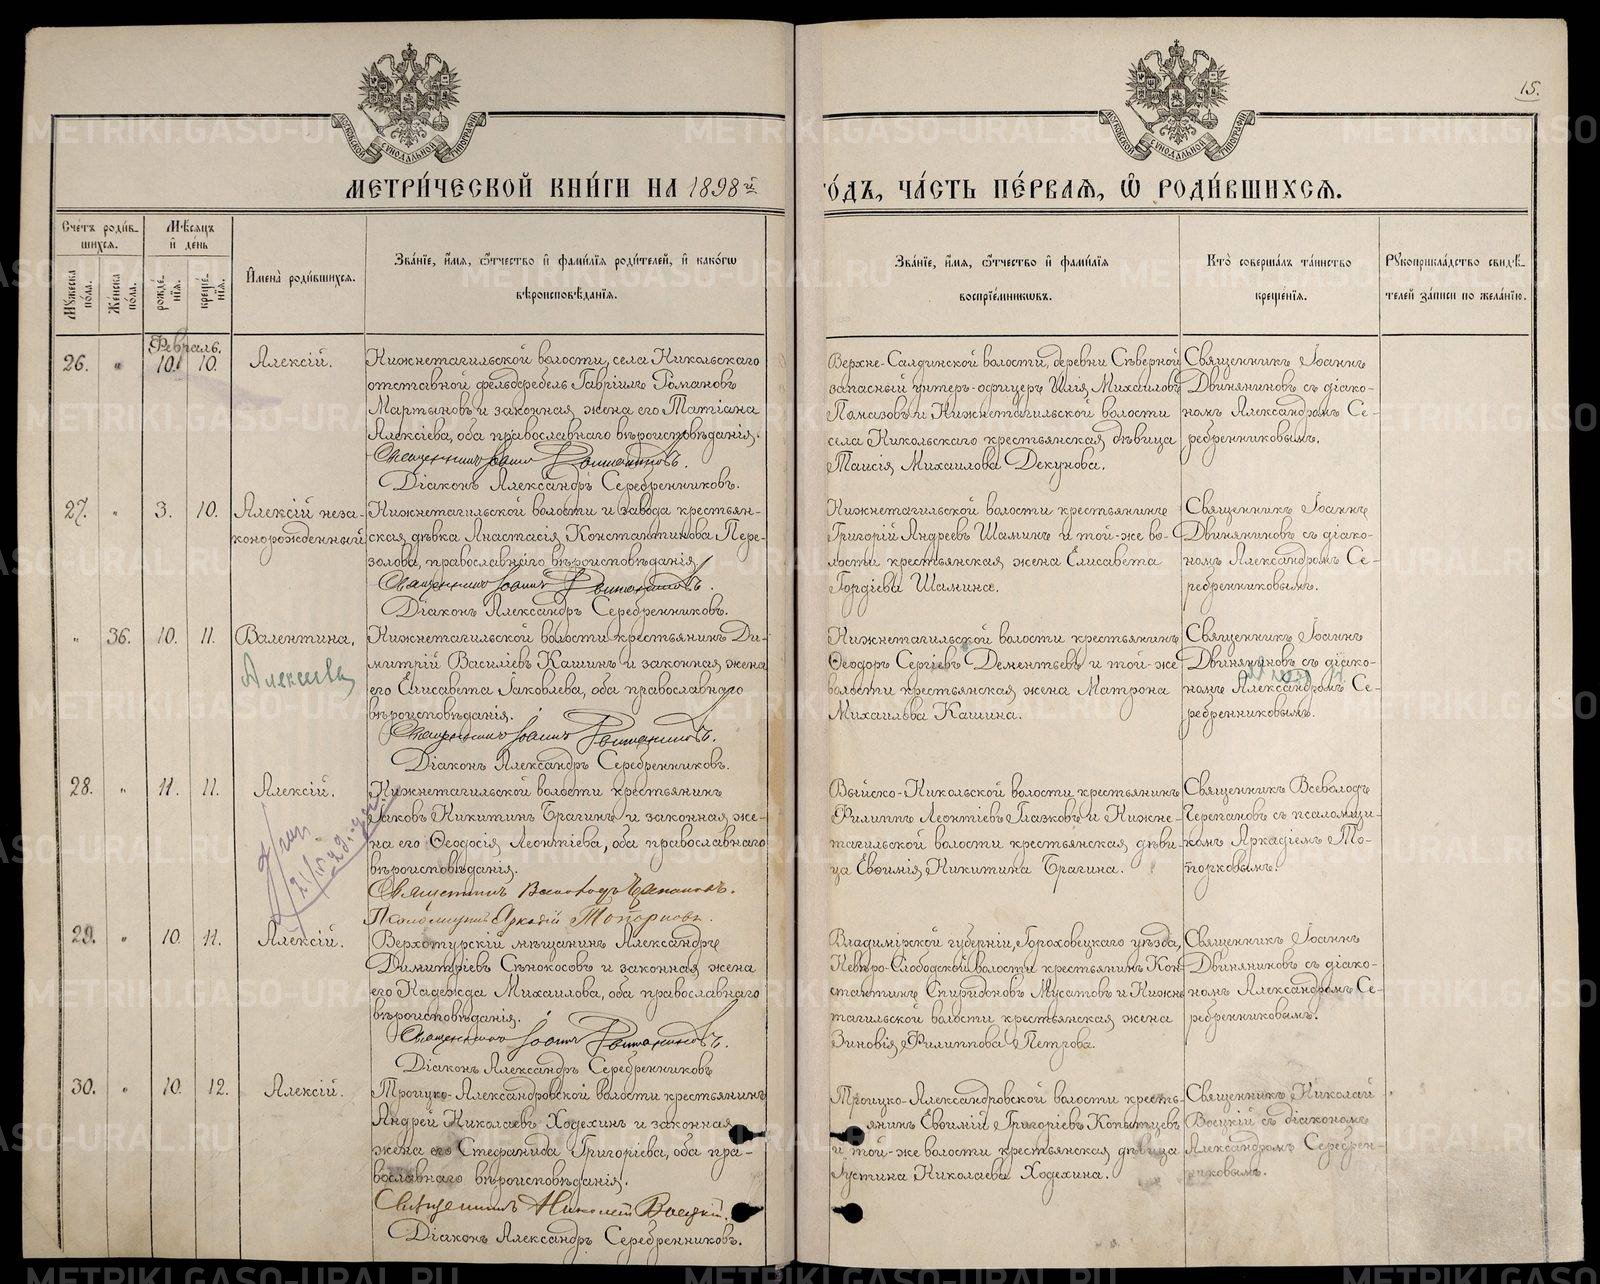 15.
МОСКОВСКОЙ СѴНОДАЛЬНОЙ ТИПОГРАФІИ
МОСКОВСКОЙ СѴНОДАЛЬНОЙ ТИПОГРАФІИ
МЕТРИ́ЧЕСКОЙ КНИ́ГИ НА 1898й
го́дъ, ча́сть пе́рваѧ, ѡ҆ роди́вшихсѧ.
Сче́тъ роди́в-
шихсѧ.
Мꙋ́жеска по́ла.
Же́нска по́ла.
Мѣ́сѧцъ
и҆ де́нь
рожде́-
нїѧ.
креще́-
нїѧ.
И҆мена̀ роди́вшихсѧ.
Зва́нїе, и҆́мѧ, ѻ҆́тчество и҆ фами́лїѧ роди́телей, и҆ како́гѡ
вѣроисповѣ́данїѧ.
Зва́нїе, и҆́мѧ, ѻ҆́тчество и҆ фами́лїѧ
воспрїе́мникѡвъ.
Кто̀ соверша́лъ та́инство
креще́нїѧ.
Рꙋкоприкла́дство свидѣ́-
телей за́писи по жела́нїю.
Февраль.
26. " 10. 10. Алексій.
Нижнетагильской волости, села Никольскаго
отставной фельдфебель Гавріилъ Романовъ
Мартыновъ и законная жена его Татіана
Алексіева, оба православнаго вѣроисповѣданія.
Священникъ Іоаннъ Двиняниновъ.
Діаконъ Александръ Серебренниковъ.
Верхне-Салдинской волости, деревни Сѣверной
запасный унтеръ-офицеръ Илія Михаиловъ
Помазовъ и Нижнетагильской волости
села Никольскаго крестьянская дѣвица
Таисія Михаилова Декунова.
Священникъ Іоаннъ
Двиняниновъ съ діако-
номъ Александромъ Се-
ребренниковымъ.
27. " 3. 10. Алексій неза-
конорожденный
Нижнетагильской волости и завода крестьян-
ская дѣвка Анастасія Константинова Пере-
золова, православнаго вѣроисповѣданія
Священникъ Іоаннъ Двиняниновъ.
Діаконъ Александръ Серебренниковъ.
Нижнетагильской волости крестьянинъ
Григорій Андреевъ Шаминъ и той-же во-
лости крестьянская жена Елисавета
Гордіева Шамина.
Священникъ Іоаннъ
Двиняниновъ съ діако-
номъ Александромъ Се-
ребренниковымъ.
" 36. 10. 11. Валентина.
Алексеева
Нижнетагильской волости крестьянинъ Ди-
митрій Василіевъ Кашинъ и законная жена
его Елисавета Іаковлева, оба православнаго
вѣроисповѣданія.
Священникъ Іоаннъ Двиняниновъ.
Діаконъ Александръ Серебренниковъ.
Нижнетагильской волости крестьянинъ
Ѳеодоръ Сергіевъ Дементьевъ и той-же
волости крестьянская жена Матрона
Михаилова Кашина.
Священникъ Іоаннъ
Двиняниновъ съ діако-
номъ Александромъ Се-
ребренниковымъ.
28. " 11. 11. Алексій.
Нижнетагильской волости крестьянинъ
Іаковъ Никитинъ Брагинъ и законная же-
на его Ѳеодосія Леонтіева, оба православнаго
вѣроисповѣданія.
Священникъ Всеволодъ Черепановъ.
Псаломщикъ Аркадій Топорковъ.
Выйско-Никольской волости крестьянинъ
Филиппъ Леонтіевъ Глазковъ и Нижне-
тагильской волости крестьянская дѣви-
ца Евѳимія Никитина Брагина.
Священникъ Всеволодъ
Черепановъ съ псаломщи-
комъ Аркадіемъ То-
порковымъ.
29. " 10. 11. Алексій.
Верхотурскій мѣщанинъ Александръ
Димитріевъ Сѣнокосовъ и законная жена
его Надежда Михаилова, оба православнаго
вѣроисповѣданія.
Священникъ Іоаннъ Двиняниновъ.
Діаконъ Александръ Серебренниковъ
Владимірской губерніи, Гороховецкаго уѣзда,
Невѣро-Слободской волости крестьянинъ Кон-
стантинъ Спиридоновъ Мусатовъ и Нижне
тагильской волости крестьянская жена
Зиновія Филиппова Петрова.
Священникъ Іоаннъ
Двиняниновъ съ діако-
номъ Александромъ Се-
ребренниковымъ.
30. " 10. 12. Алексій.
Троицко-Александровской волости крестьянинъ
Андрей Николаевъ Ходехинъ и законная
жена его Стефанида Григоріева, оба пра-
вославнаго вѣроисповѣданія.
Священникъ Николай Воецкій.
Діаконъ Александръ Серебренниковъ.
Троицко-Александровской волости кресть-
янинъ Евѳимій Григоріевъ Копытцевъ
и той-же волости крестьянская дѣвица
Іустина Николаева Ходехина.
Священникъ Николай
Воецкій съ діакономъ
Александромъ Серебрен-
никовымъ.
METRIKI.GASO-URAL.RU